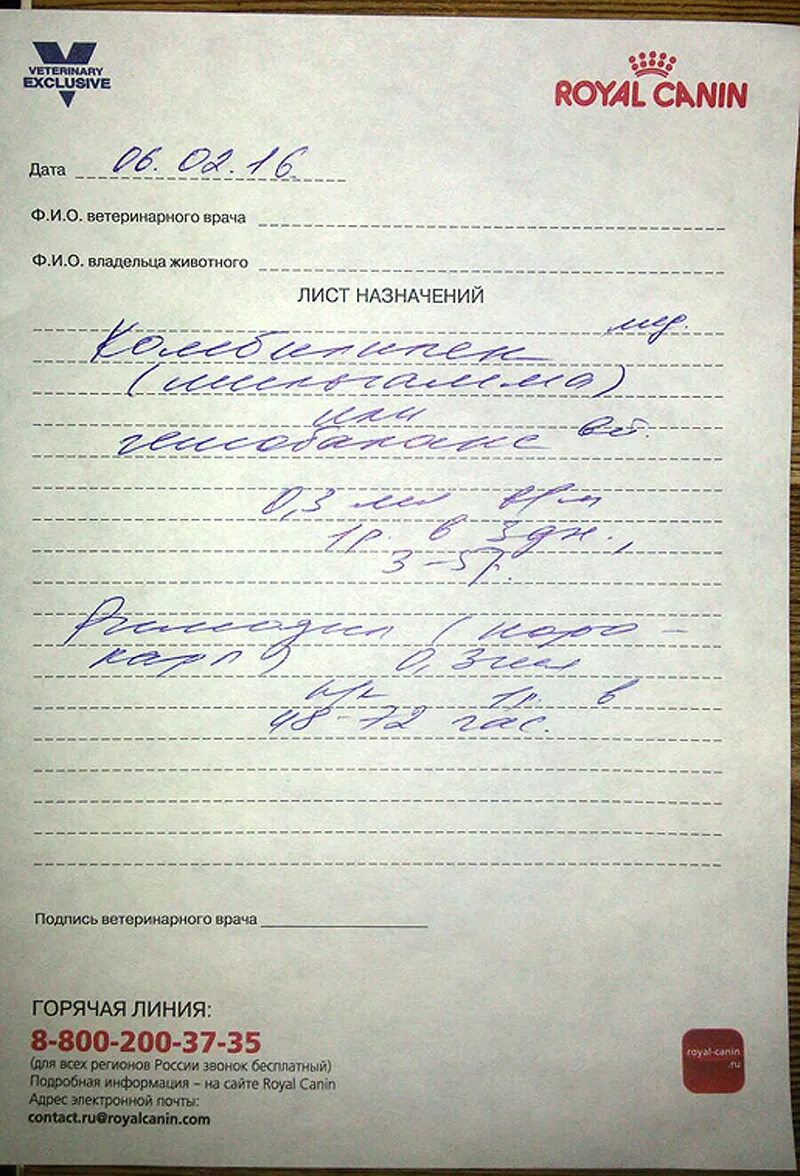 VETERINARY
EXCLUSIVE
ROYAL CANIN
Дата 06.02.16
Ф.И.О. ветеринарного врача
Ф.И.О. владельца животного
ЛИСТ НАЗНАЧЕНИЙ
мед.
Комбилипен
(мильгамма)
или
гемобаланс вет.
0,3 мл в/м
1р. в 3 дн.,
3-5 р.
Римадил (норо-
карп) 0,3 мл
п/к 1р. в
48-72 час.
Подпись ветеринарного врача
ГОРЯЧАЯ ЛИНИЯ:
8-800-200-37-35
(для всех регионов России звонок бесплатный)
Подробная информация – на сайте Royal Canin
Адрес электронной почты:
contact.ru@royalcanin.com
royal-canin
.ru